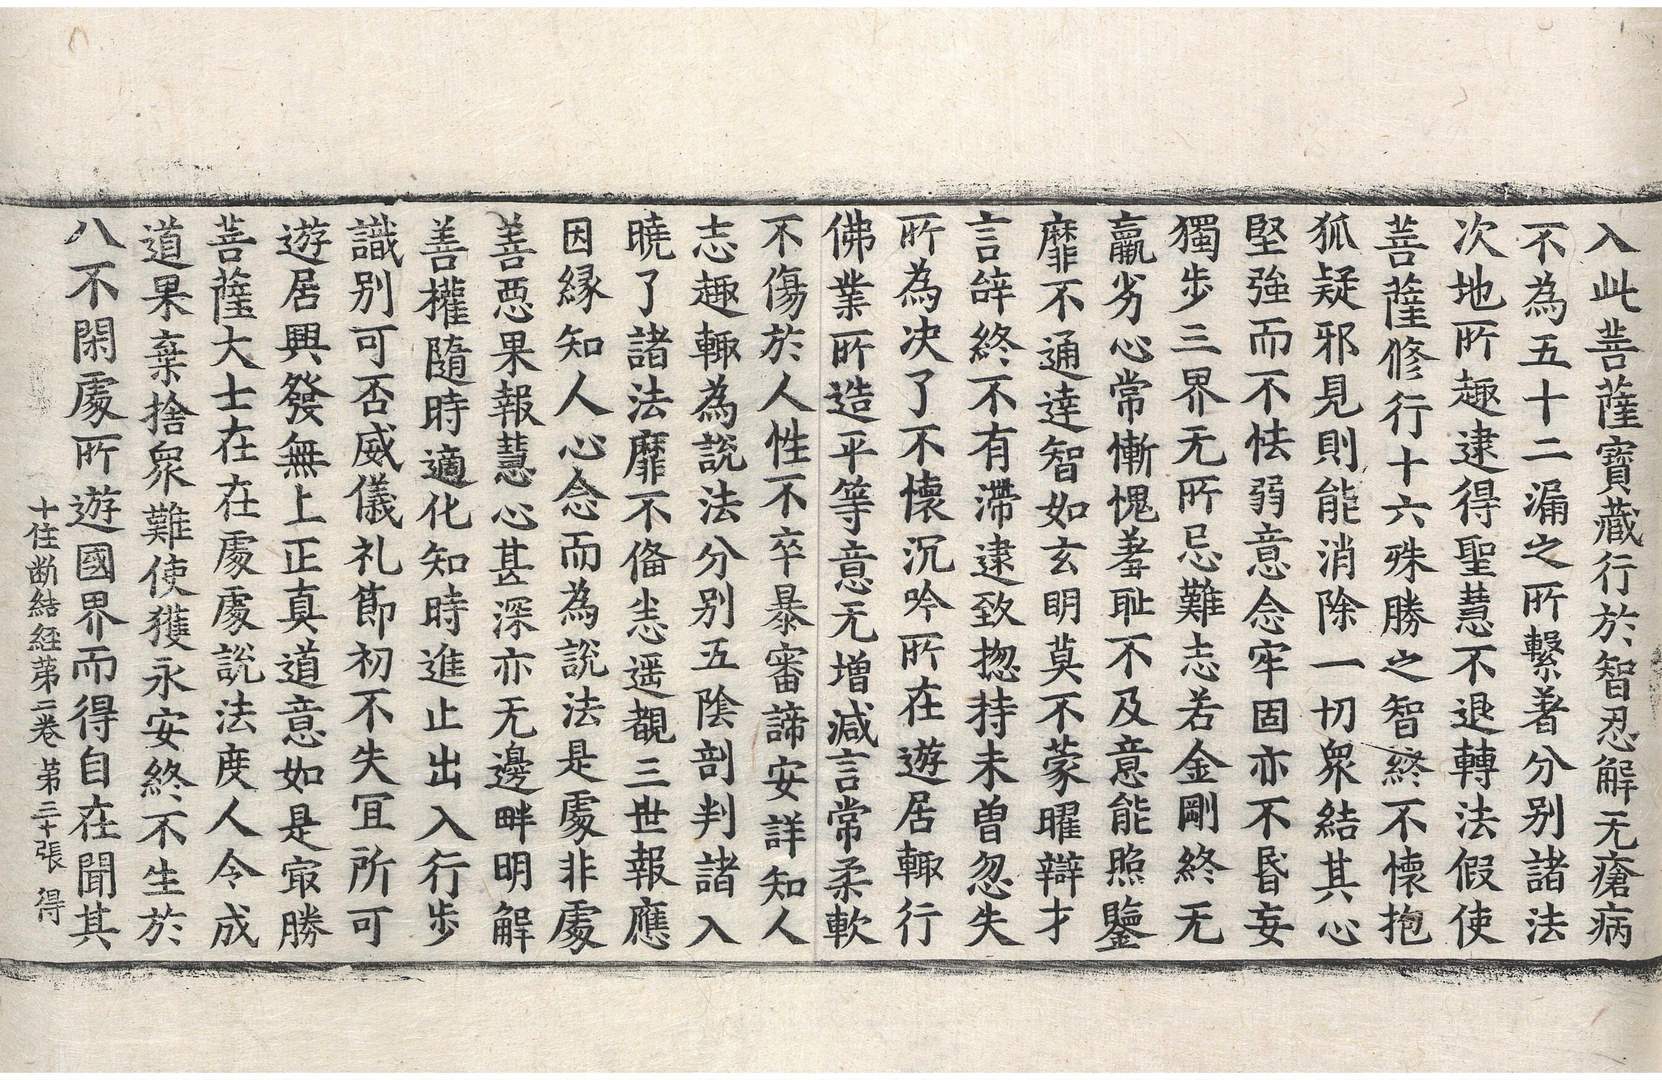 入此菩薩寶藏行於智忍解无瘡病
不為五十二漏之所繫著分別諸法
次地所趣逮得聖慧不退轉法假使
菩薩修行十六殊勝之智終不懷抱
狐疑邪見則能消除一切衆結其心
堅強而不怯弱意念牢固亦不昬妄
獨步三界无所忌難志若金剛終无
羸劣心常慚愧羞耻不及意能照鑒
靡不通達智如玄明莫不蒙曜辯才
言辝終不有滯逮致揔持未曽忽失
所為决了不懷沉吟所在遊居輙行
佛業所造平等意无增減言常柔軟
不傷於人性不卒暴審諦安詳知人
志趣輙為説法分别五陰剖判諸入
曉了諸法靡不俻悉遥覩三世報應
因縁知人心念而為説法是處非處
善惡果報慧心甚深亦无邊畔明解
善權隨時適化知時進止出入行步
識别可否威儀礼節初不失冝所可
遊居興發無上正真道意如是冣勝
菩薩大士在在處處説法度人令成
道果棄捨衆難使獲永安終不生於
八不閑處所遊國界而得自在聞其
十住断結経第二卷 第三十張 得